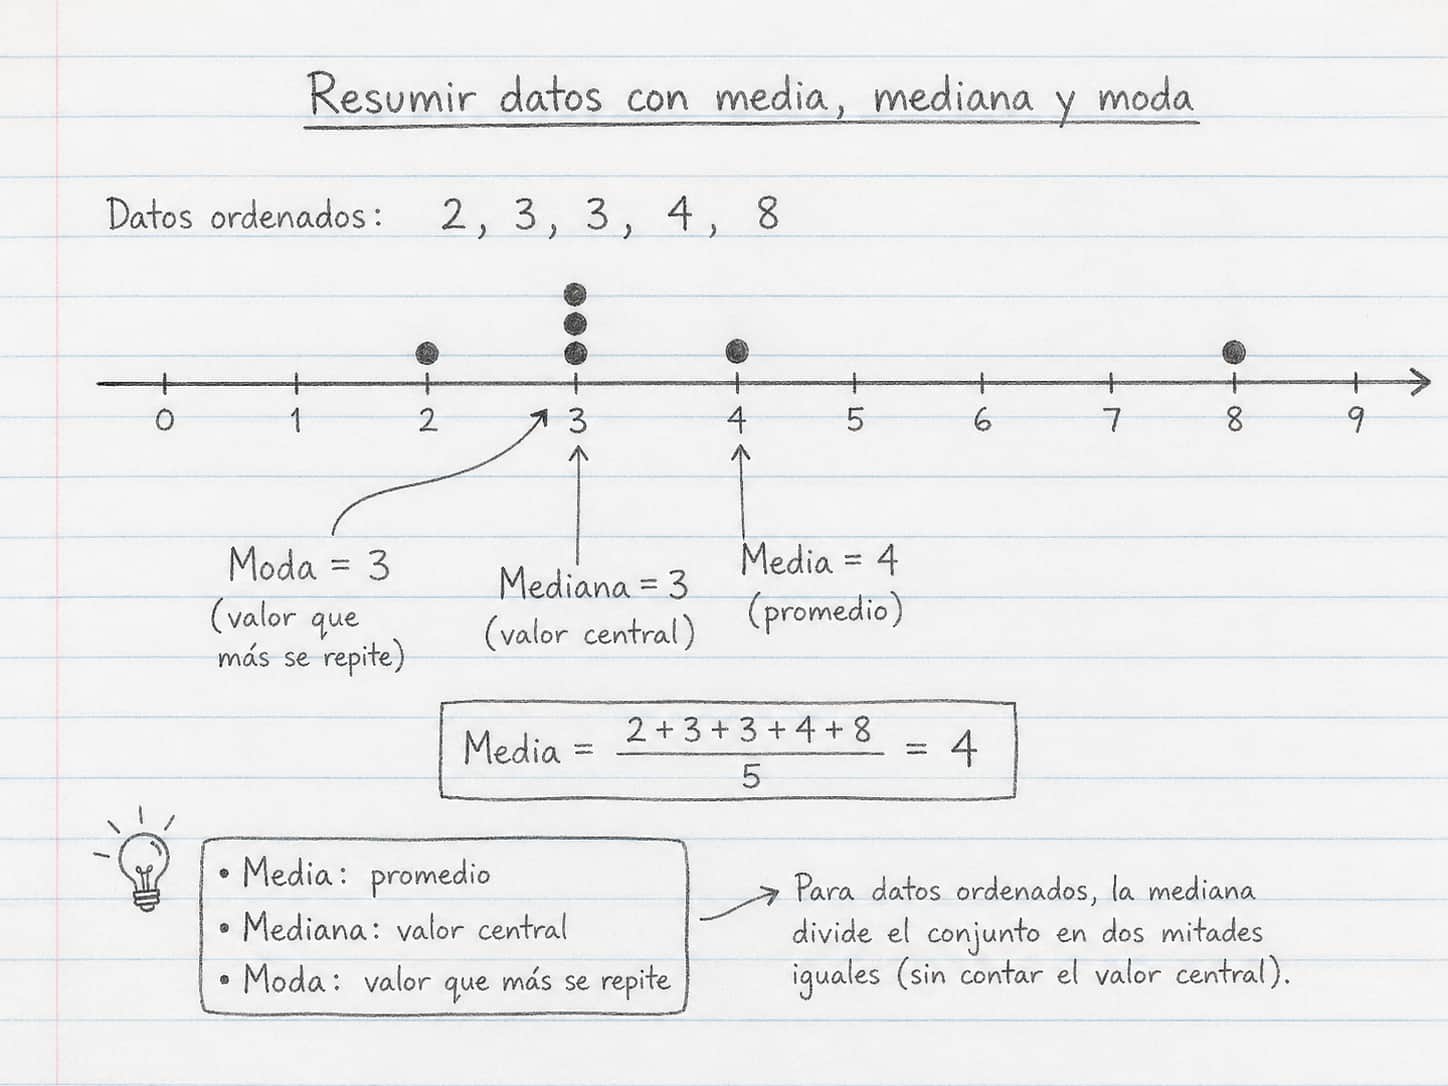 Resumir datos con media, mediana y moda
Datos ordenados: 2, 3, 3, 4, 8
0 1 2 3 4 5 6 7 8 9
Moda = 3
(valor que
más se repite)
Mediana = 3
(valor central)
Media = 4
(promedio)
Media = 2 + 3 + 3 + 4 + 8 / 5 = 4
• Media: promedio
• Mediana: valor central
• Moda: valor que más se repite
Para datos ordenados, la mediana
divide el conjunto en dos mitades
iguales (sin contar el valor central).